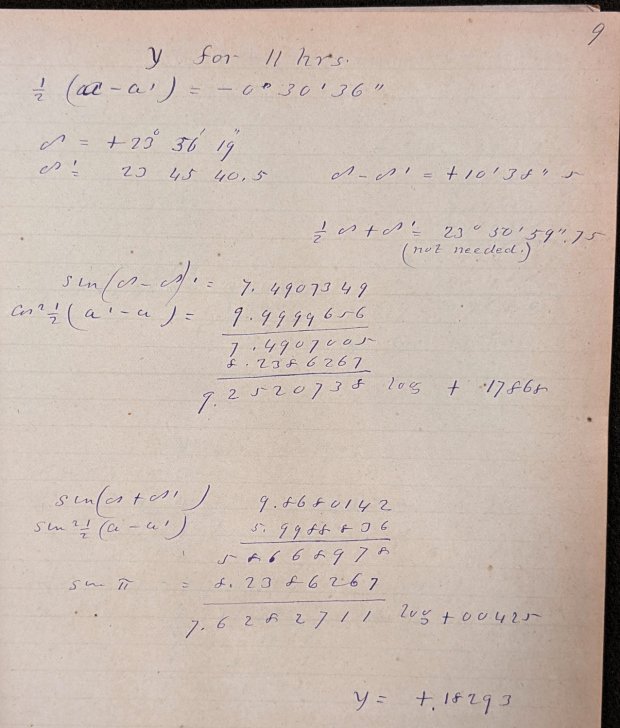 9
y for 11 hrs.
½ (a - a') = - 0° 30' 36"
δ = + 23° 56' 19"
δ' = 23 45 40.5 δ - δ' = + 10' 38". 5
½ δ + δ' = 23° 50' 59".75
(not needed.)
sin (δ - δ')' = 7.4907349
cos² ½ (a' - a) = 9.9999656
7.4907005
8.2386267
9.2520738 log + .17868
sin (δ + δ') 9.8680142
sin² ½ (a - a') 5.9988836
5 8668978
sin π = 8.2386267
7.6282711 log + 00425
y = + .18293